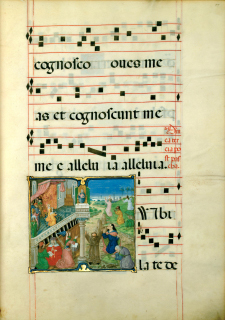 cognosco oues me
as et cognoscunt me
me e allelu ia alleluia.
Iubi
late de